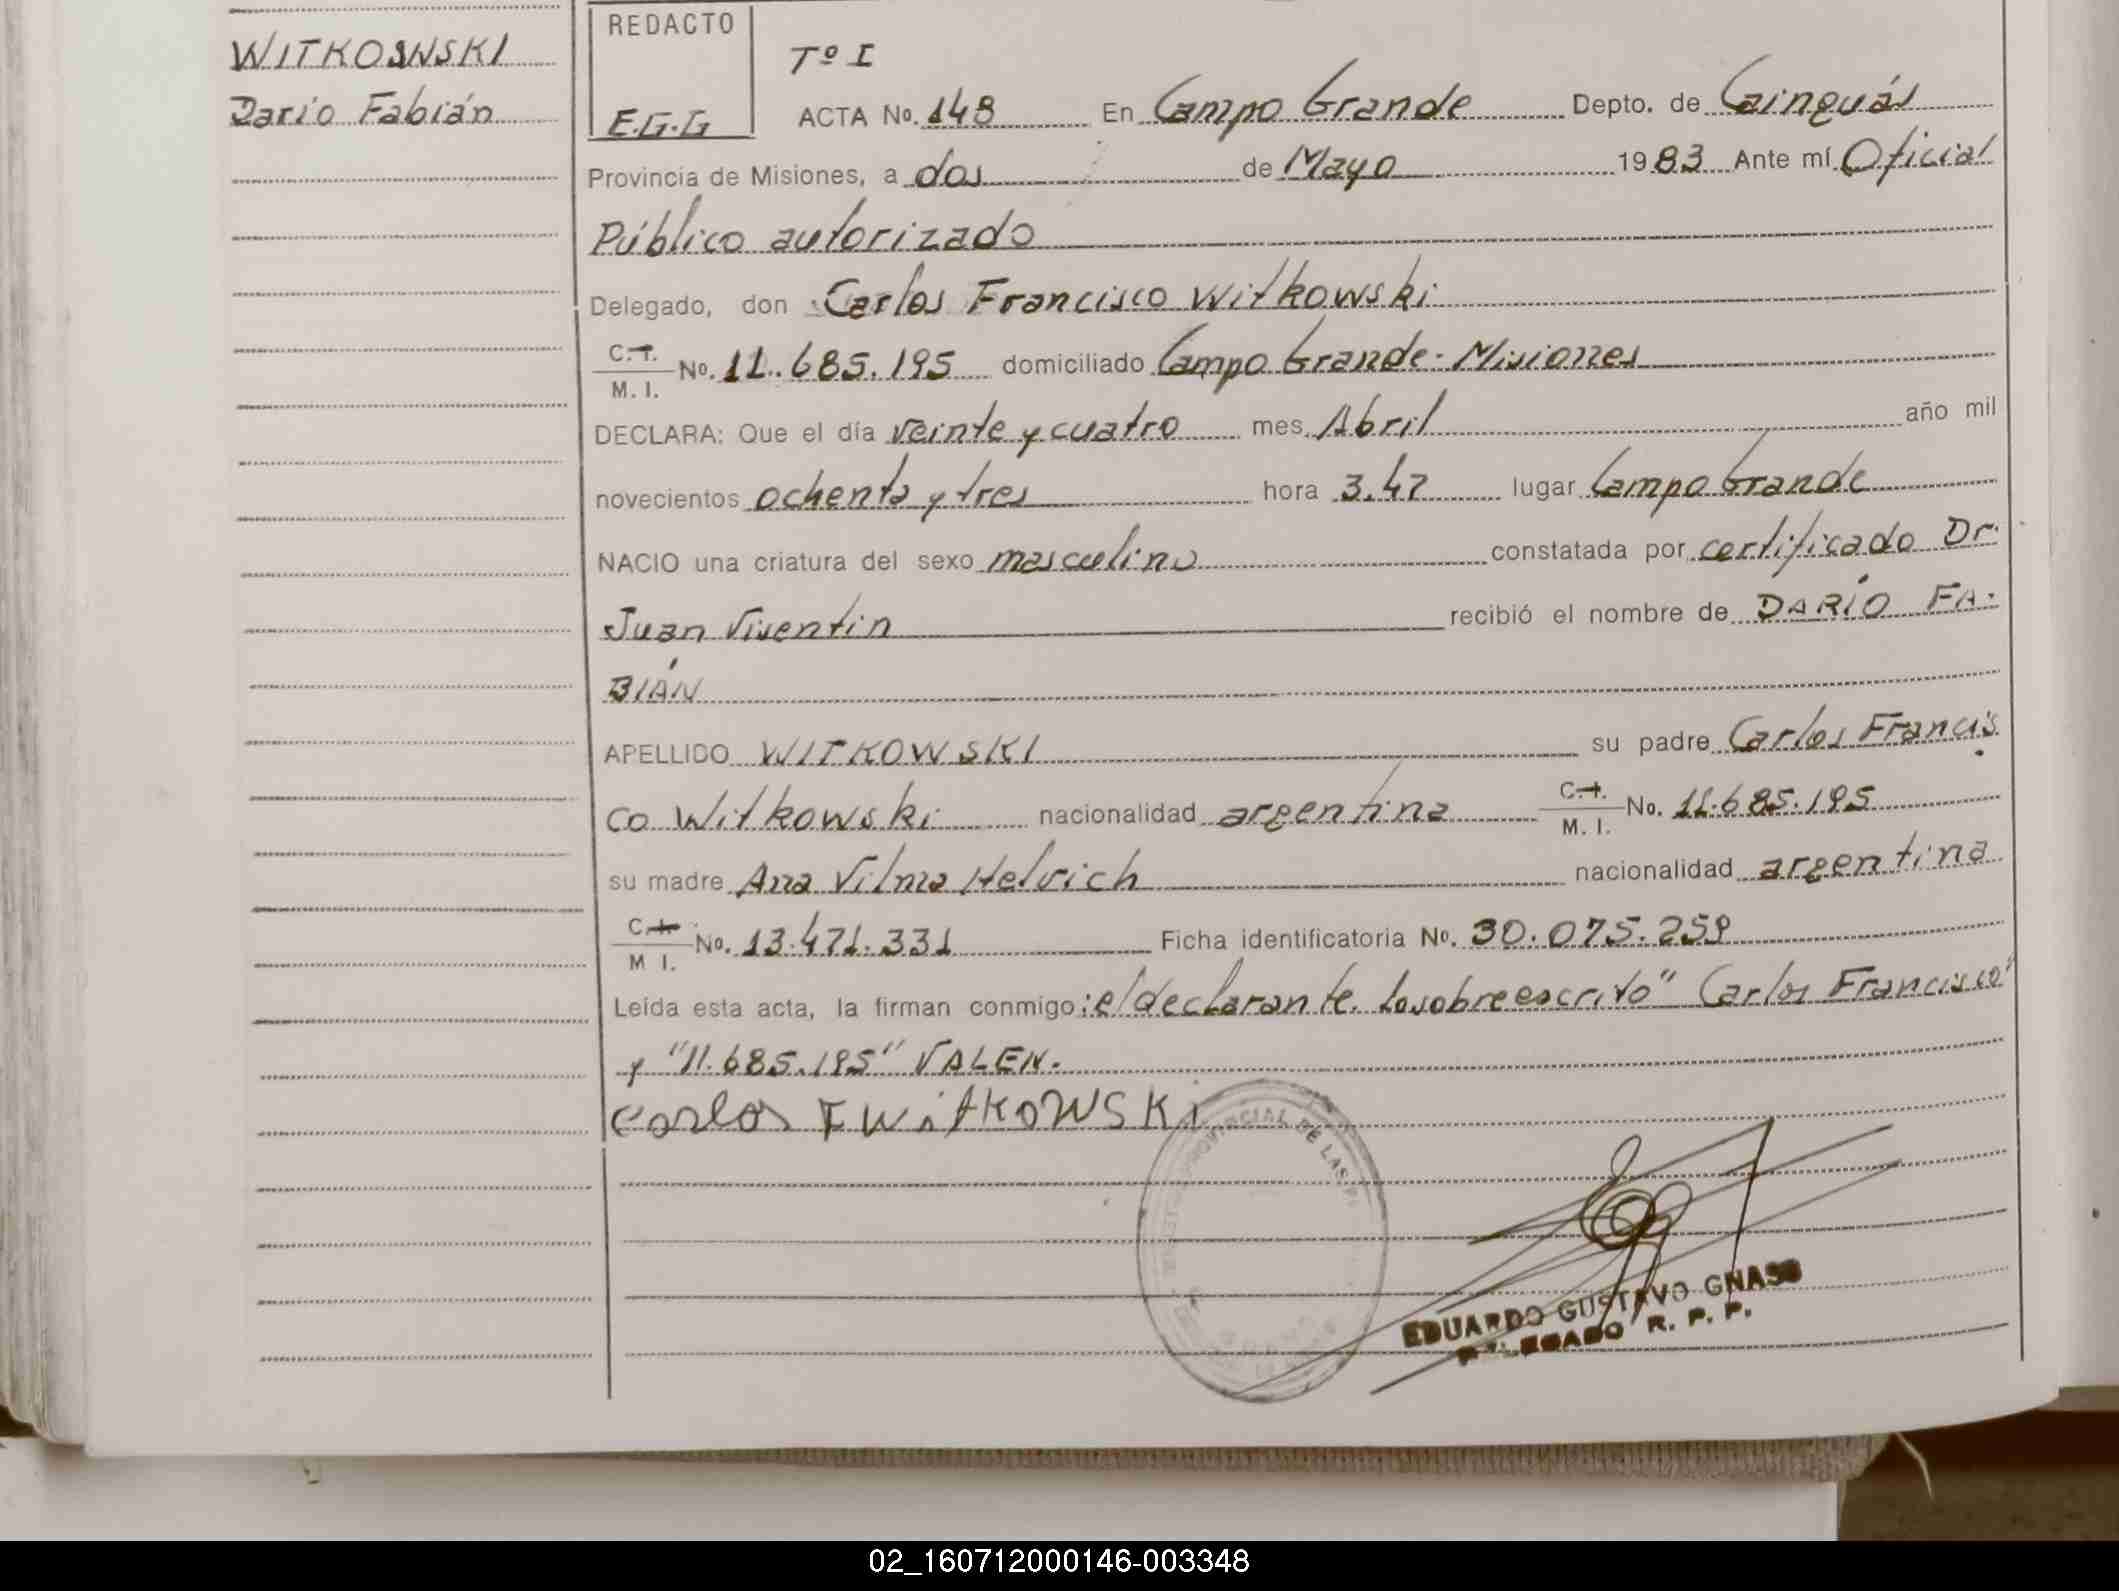 WITKOWSKI
Darío Fabián
REDACTO
E.G.G
Tº I
ACTA No. 148 En Campo Grande Depto. de Cainguás
Provincia de Misiones, a dos de Mayo 1983 Ante mí Oficial
Público autorizado
Delegado, don Carlos Francisco Witkowski
C.I. M. I. No. 11.685.195 domiciliado Campo Grande - Misiones
DECLARA: Que el día veinte y cuatro mes Abril año mil
novecientos ochenta y tres hora 3.47 lugar Campo Grande
NACIO una criatura del sexo masculino constatada por certificado Dr.
Juan Visentin recibió el nombre de DARÍO FA-
BIÁN
APELLIDO WITKOWSKI su padre Carlos Francis
co Witkowski nacionalidad argentina C.I. M. I. No. 11.685.195
su madre Ana Vilma Helvich nacionalidad argentina
C.I. M I. No. 13.471.331 Ficha identificatoria No. 30.075.259
Leída esta acta, la firman conmigo: el declarante. Lo sobreescrito "Carlos Francisco"
y "11.685.195" VALEN.
Carlos F WitKOWSKI
PROVINCIAL DE LAS
EDUARDO GUSTAVO GNASS
DELEGADO R. P. P.
02_160712000146-003348